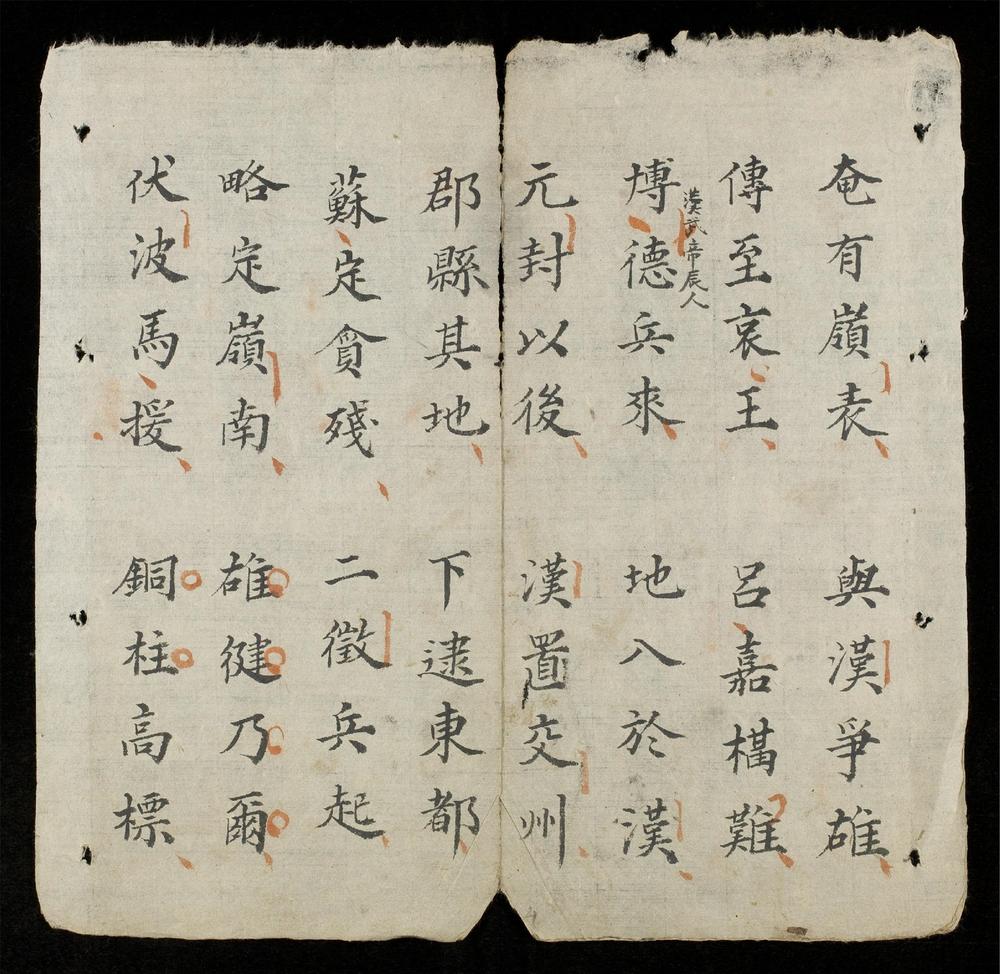 奄有嶺表 與漢爭雄
傳至哀王 呂嘉構難
漢武帝辰人
博德兵來 地入於漢
元封以後 漢置交州
郡縣其地 下逮東都
蘇定貪殘 二徵兵起
略定嶺南 雄徤乃爾
伏波馬援 銅柱高標